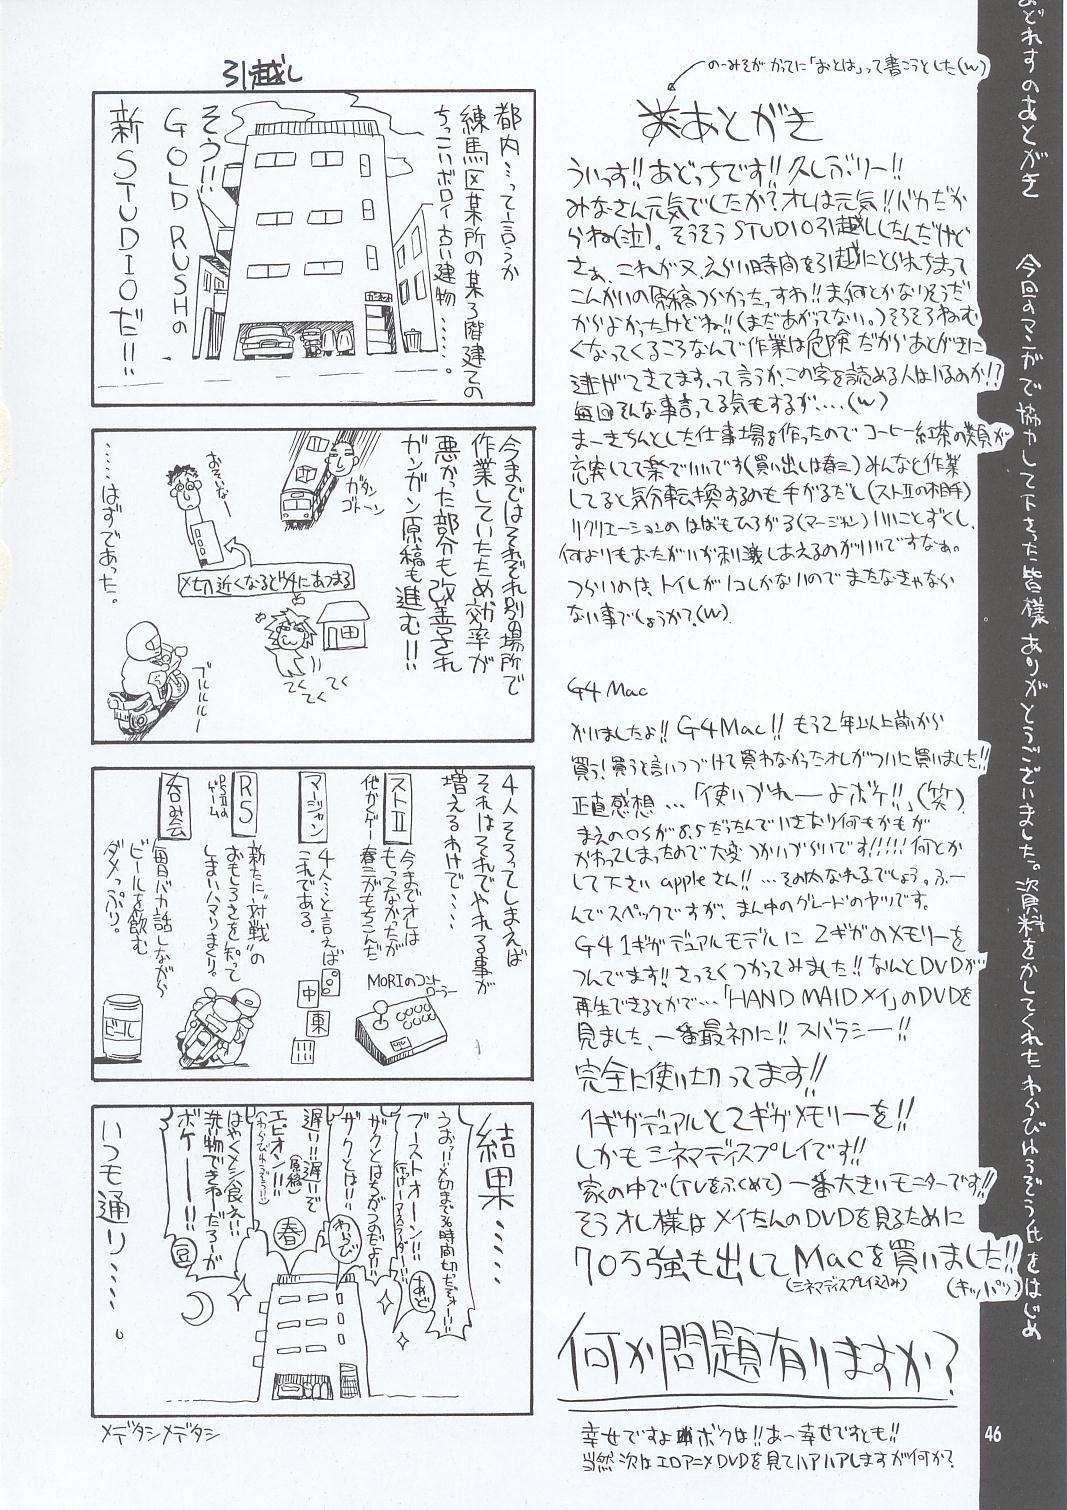 のーみそが かってに「おとは」って書こうとした(w)
あとがき
ういっす!!あどっちです!!久しぶりー!!
みなさん元気でしたか?オレは元気!!バカだか
らね(泣)。そうそうSTUDIO引越ししたんだけど
さぁ、これが又、えらい時間を引越にとられちまって
こんかいの原稿つらかったっすわ!!ま、何とかなりそうだ
からよかったけどね!!(まだあがってない。)そろそろねむ
くなってくるころなんで作業は危険だからあとがきに
逃げてきてます。って言うか、この字を読める人はいるのか!?
毎回そんな事言ってる気もするが....(w)
まーきちんとした仕事場を作ったのでコーヒー紅茶の類が
充実してて楽でいいです(買い出しは春三)みんなと作業
してると気分転換するのも手がるだし(ストⅡの相手)
リクリエーションのはばもひろがる(マージャン)いいことずくし、
何よりもおたがいが刺激しあえるのがいいですなぁ。
つらいのは、トイレが1コしかないのでまたなきゃなら
ない事でしょうか?(w)
G4 Mac
かいましたよ!! G4Mac!! もう2年以上前から
買う!買うと言いつづけて買わなかったオレがついに買いました!!
正直感想...「使いづれーよボケ!!」(笑)
まえのOSが8.5だったんでいきなり何もかもが
かわってしまったので大変つかいづらいです!!!!!何とか
して下さい appleさん!! ...その内なれるでしょう。ふー
んでスペックですが、まん中のグレードのヤツです。
G4 1ギガデュアルモデルに 2ギガのメモリーを
つんでます!!さっそくつかってみました!!なんとDVDが
再生できるとかで...「HAND MAID メイ」のDVDを
見ました、一番最初に!! スバラシー!!
完全に使い切ってます!!
1ギガデュアルと2ギガメモリーを!!
しかもシネマディスプレイです!!
家の中で(TVをふくめて)一番大きいモニターです!!
そうオレ様はメイたんのDVDを見るために
70万強も出してMacを買いました!!
(シネマディスプレイ込み) (キッパリ)
何か問題有りますか?
幸せですよボクは!!あー幸せですとも!!
当然次はエロアニメDVDを見てハァハァしますが何か?
引越し
都内...って言うか
練馬区某所の某3階建ての
ちっこいボロイ古い建物......。
そう!!
GOLD RUSHの
新STUDIOだ!!
今まではそれぞれ別の場所で
作業していたため効率が
悪かった部分も改善され
ガンガン原稿も進む!!
ガタン
ゴトーン
おそいなー
〆切近くなるとウチにあつまる
てくてくてく
ブルルルルー
......はずであった。
4人そろってしまえば
それはそれでやれる事が
増えるわけで....
ストⅡ
他かくゲー
今までオレは
もってなかったが
春三がもちこんだ
MORIのコントローラー
マージャン
4人...と言えば
これである。
中
東
RS
PSⅡのゲーム
新たに"対戦"の
おもしろさを知って
しまいハマりまくり。
呑み会
毎日バカ話しながら
ビールを飲む
ダメっぷり。
ビール
結果......
うおっ!!〆切まで36時間切ったぞォー!!
ブーストオーン!!
あど
ザクとはちがうのだよ!!
ザクとは!!
わらび
遅い!!遅いぞ
(原稿)
エピオン!!
春
はやくメシ食え!!
洗い物できねーだろーが
ボケーー!!
豆
いつも通り......。
メデタシメデタシ
あどれすのあとがき
今回のマンガで協力して下さった皆様ありがとうございました。資料をかしてくれたわらびもちぞう氏をはじめ
46